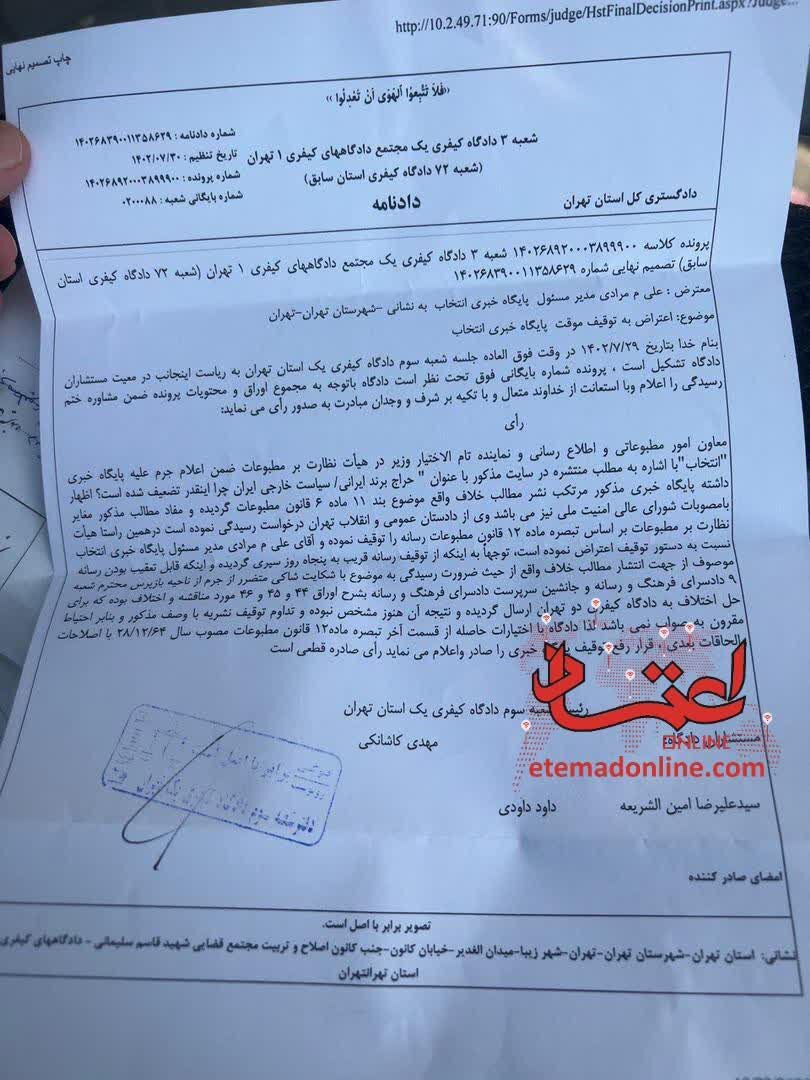 http://10.2.49.71:90/Forms/judge/HstFinalDecisionPrint.aspx?Judge...
چاپ تصمیم نهایی
«فَلاَ تَتَّبِعُوا اَلْهَوَی اَنْ تَعْدِلُوا »
شماره دادنامه : ۱۴۰۲۶۸۳۹۰۰۱۱۳۵۸۶۲۹
تاریخ تنظیم : ۱۴۰۲/۰۷/۳۰
شماره پرونده : ۱۴۰۲۶۸۹۲۰۰۰۳۸۹۹۹۰۰
شماره بایگانی شعبه : ۰۲۰۰۰۸۸
شعبه ۳ دادگاه کیفری یک مجتمع دادگاههای کیفری ۱ تهران
(شعبه ۷۲ دادگاه کیفری استان سابق)
دادنامه
دادگستری کل استان تهران
پرونده کلاسه ۱۴۰۲۶۸۹۲۰۰۰۳۸۹۹۹۰۰ شعبه ۳ دادگاه کیفری یک مجتمع دادگاههای کیفری ۱ تهران (شعبه ۷۲ دادگاه کیفری استان
سابق) تصمیم نهایی شماره ۱۴۰۲۶۸۳۹۰۰۱۱۳۵۸۶۲۹
معترض : علی م مرادی مدیر مسئول پایگاه خبری انتخاب به نشانی -شهرستان تهران-تهران
موضوع: اعتراض به توقیف موقت پایگاه خبری انتخاب
بنام خدا بتاریخ ۱۴۰۲/۷/۲۹ در وقت فوق العاده جلسه شعبه سوم دادگاه کیفری یک استان تهران به ریاست اینجانب در معیت مستشاران
دادگاه تشکیل است ، پرونده شماره بایگانی فوق تحت نظر است دادگاه باتوجه به مجموع اوراق و محتویات پرونده ضمن مشاوره ختم
رسیدگی را اعلام وبا استعانت از خداوند متعال و با تکیه بر شرف و وجدان مبادرت به صدور رأی می نماید:
رأی
معاون امور مطبوعاتی و اطلاع رسانی و نماینده تام الاختیار وزیر در هیأت نظارت بر مطبوعات ضمن اعلام جرم علیه پایگاه خبری
"انتخاب"با اشاره به مطلب منتشره در سایت مذکور با عنوان " حراج برند ایرانی/ سیاست خارجی ایران چرا اینقدر تضعیف شده است؟ اظهار
داشته پایگاه خبری مذکور مرتکب نشر مطالب خلاف واقع موضوع بند ۱۱ ماده ۶ قانون مطبوعات گردیده و مفاد مطالب مذکور مغایر
بامصوبات شورای عالی امنیت ملی نیز می باشد وی از دادستان عمومی و انقلاب تهران درخواست رسیدگی نموده است درهمین راستا هیأت
نظارت بر مطبوعات بر اساس تبصره ماده ۱۲ قانون مطبوعات رسانه را توقیف نموده و آقای علی م مرادی مدیر مسئول پایگاه خبری انتخاب
نسبت به دستور توقیف اعتراض نموده است، توجهاً به اینکه از توقیف رسانه قریب به پنجاه روز سپری گردیده و اینکه قابل تعقیب بودن رسانه
موصوف از جهت انتشار مطالب خلاف واقع از حیث ضرورت رسیدگی به موضوع با شکایت شاکی متضرر از جرم از ناحیه بازپرس محترم شعبه
۹ دادسرای فرهنگ و رسانه و جانشین سرپرست دادسرای فرهنگ و رسانه بشرح اوراق ۴۴ و ۴۵ و ۴۶ مورد مناقشه و اختلاف بوده که برای
حل اختلاف به دادگاه کیفری دو تهران ارسال گردیده و نتیجه آن هنوز مشخص نبوده و تداوم توقیف نشریه با وصف مذکور و بنابر احتیاط
مقرون به صواب نمی باشد لذا دادگاه با اختیارات حاصله از قسمت آخر تبصره ماده۱۲ قانون مطبوعات مصوب سال ۲۸/۱۲/۶۴ با اصلاحات
الحاقات بعدی ، قرار رفع توقیف خبری را صادر واعلام می نماید رأی صادره قطعی است
رئیس شعبه سوم دادگاه کیفری یک استان تهران
مهدی کاشانکی
مستشاران دادگاه:
سیدعلیرضا امین الشریعه داود داودی
اعتماد
ONLINE
etemadonline.com
امضای صادر کننده
تصویر برابر با اصل است.
نشانی: استان تهران-شهرستان تهران-تهران-شهر زیبا-میدان الغدیر-خیابان کانون-جنب کانون اصلاح و تربیت مجتمع قضایی شهید قاسم سلیمانی - دادگاههای کیفری
استان تهرانتهران